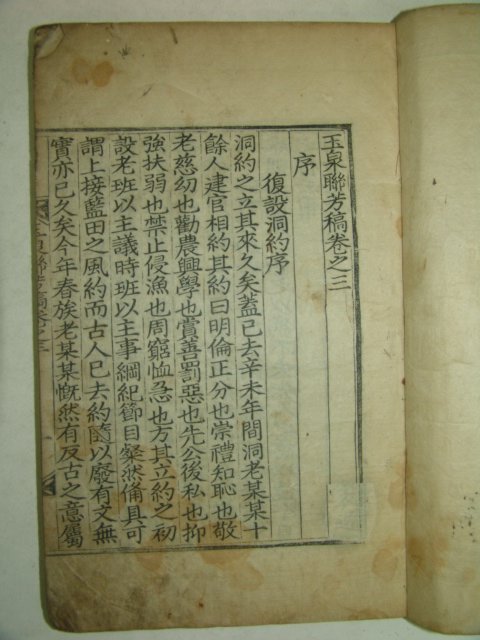 玉泉聯芳稿卷之三
序
復設洞約序
洞約之立其來久矣蓋已去辛未年間洞老某某十
餘人建官相約其約曰明倫正分也崇禮知恥也敬
老慈幼也勸農興學也賞善罰惡也先公後私也抑
強扶弱也禁止侵漁也周窮恤急也方其立約之初
設老班以主議時班以主事綱紀節目粲然俻具可
謂上接藍田之風約而古人已去約隨以廢有文無
實亦已久矣今年春族老某某慨然有反古之意屬
玉泉聯芳稿卷之三